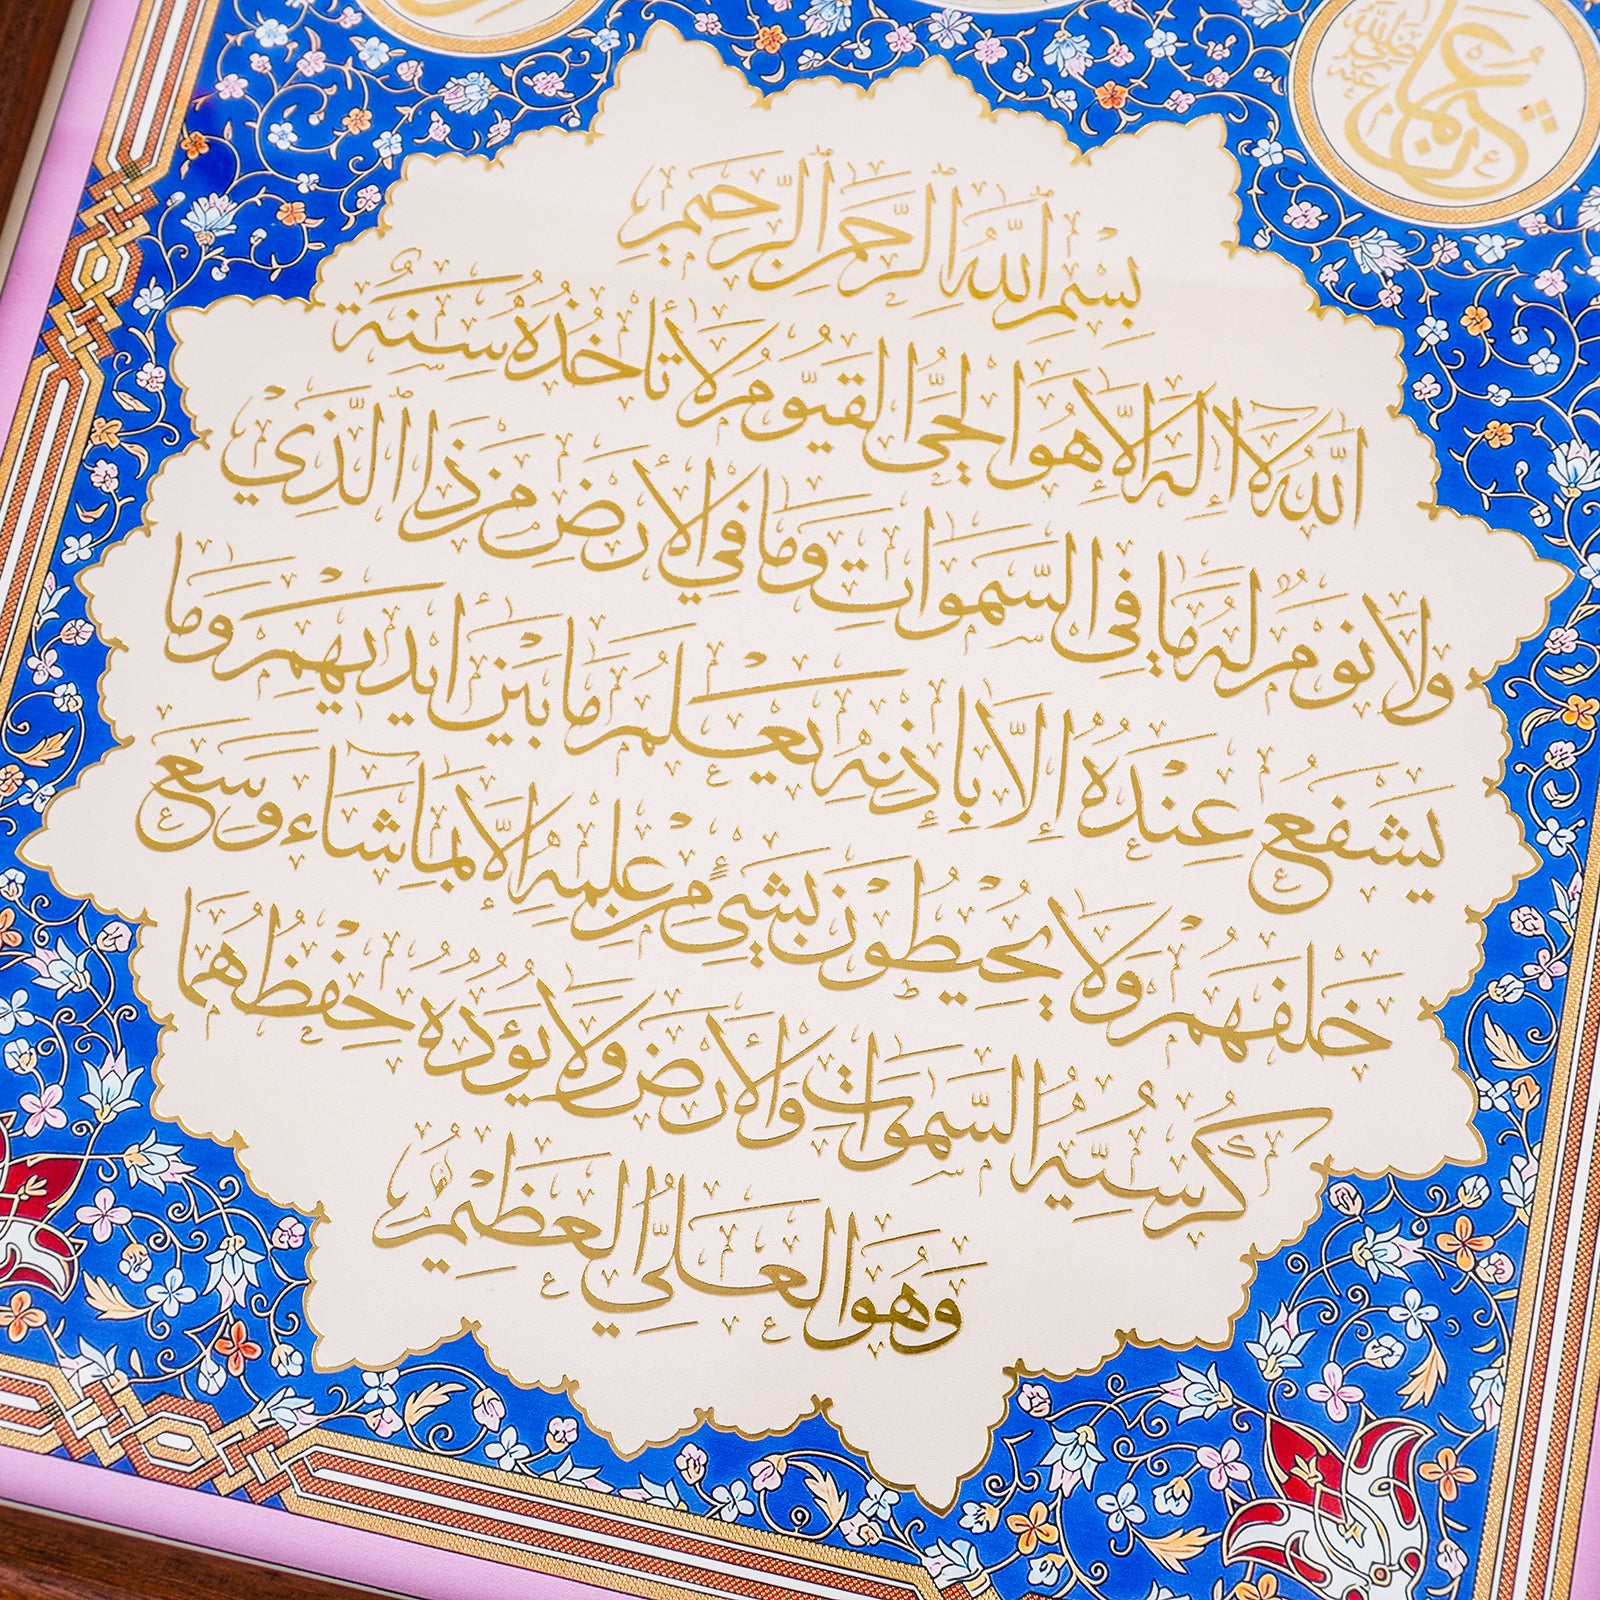 عثمان رضي الله عنه
بِسْمِ اللهِ الرَّحْمٰنِ الرَّحِيمِ
اَللهُ لَا اِلٰهَ اِلَّا هُوَ الْحَيُّ الْقَيُّومُ لَا تَأْخُذُهُ سِنَةٌ
وَلَا نَوْمٌ لَهُ مَا فِي السَّمٰوَاتِ وَمَا فِي الْأَرْضِ مَنْ ذَا الَّذِي
يَشْفَعُ عِنْدَهُ إِلَّا بِإِذْنِهِ يَعْلَمُ مَا بَيْنَ أَيْدِيهِمْ وَمَا
خَلْفَهُمْ وَلَا يُحِيطُونَ بِشَيْءٍ مِنْ عِلْمِهِ إِلَّا بِمَا شَاءَ وَسِعَ
كُرْسِيُّهُ السَّمٰوَاتِ وَالْأَرْضَ وَلَا يَؤُدُهُ حِفْظُهُمَا
وَهُوَ الْعَلِيُّ الْعَظِيمُ